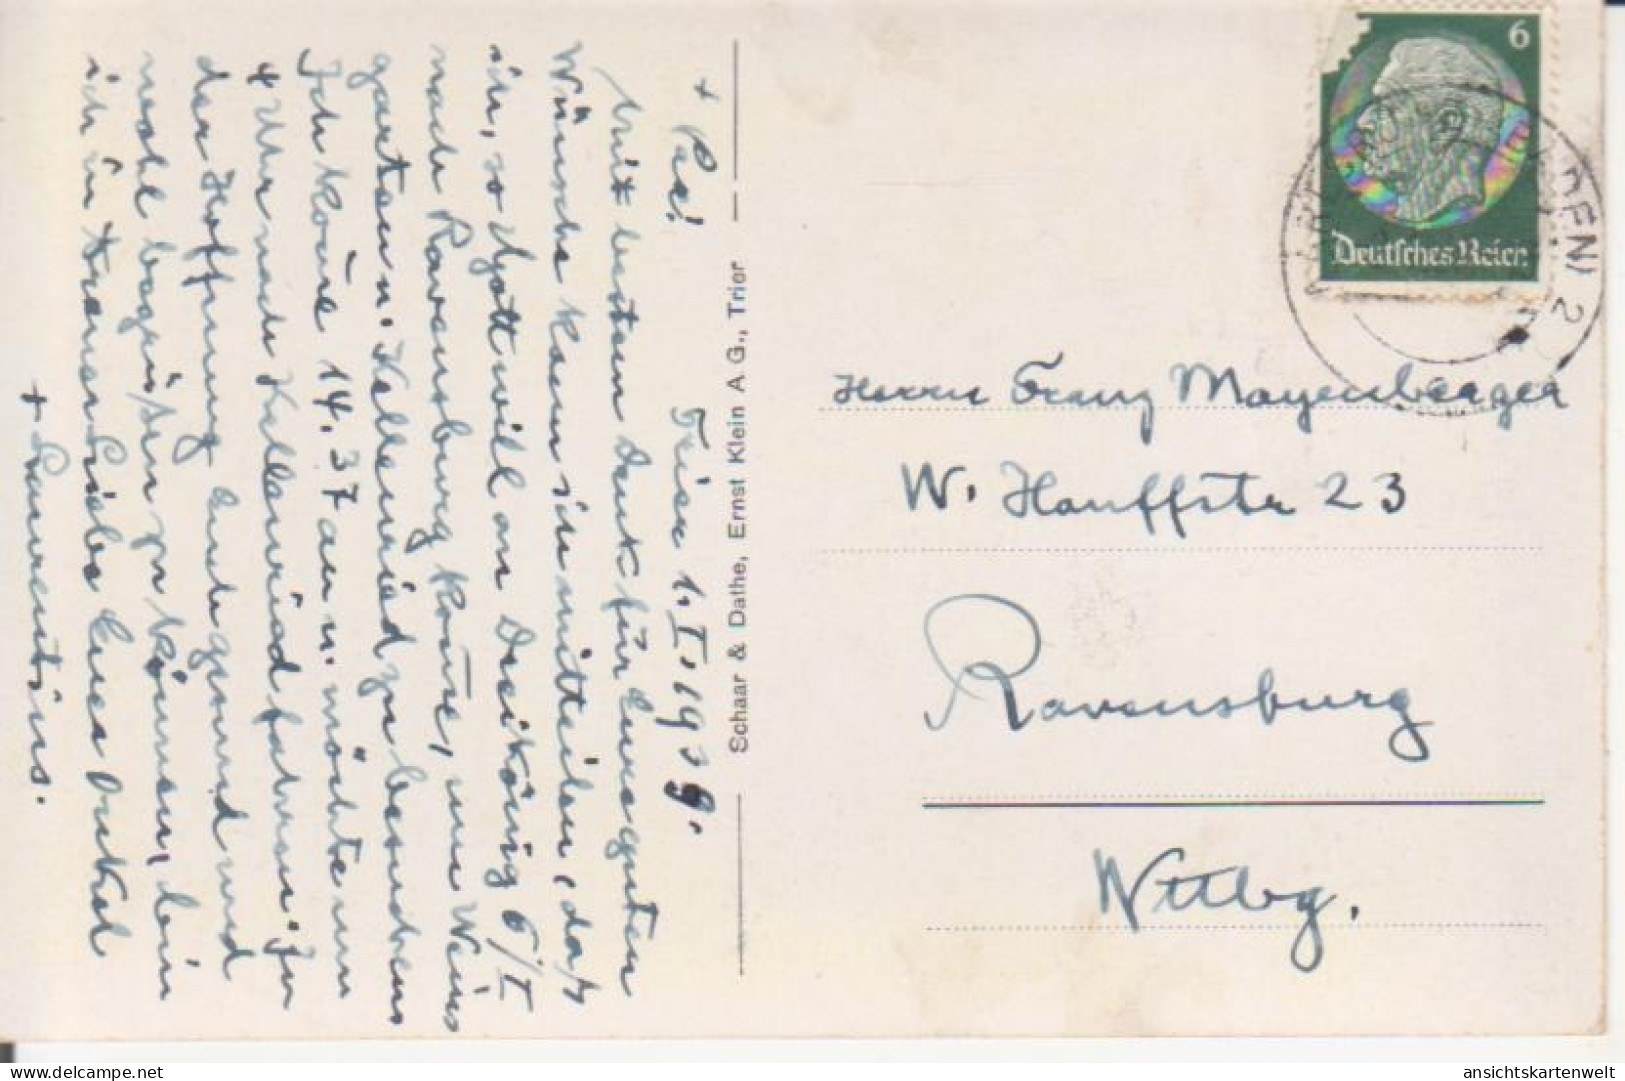 + Pax! Trier 1.I.1939.
Mit bestem Dank für Eure guten
Wünsche kann ich mitteilen, daß
ich, so Gott will an Dreikönig 6/I
nach Ravensburg kom̄e, um Wein
garten u. Kellenried zu besuchen
Ich kom̄e 14.37 an u. möchte um
4 Uhr nach Kellenried fahren. In
der Hoffnung Euch gesund und
wohl begrüßen zu können, bin
ich in treuer Liebe Euer Onkel
+ Laurentius.
Schaar & Dathe, Ernst Klein A. G., Trier
6
Deutsches Reich
(BADEN) 2
Herrn Franz Mayenberger
W. Hauffstr 23
Ravensburg
Wttbg.
ansichtskartenwelt